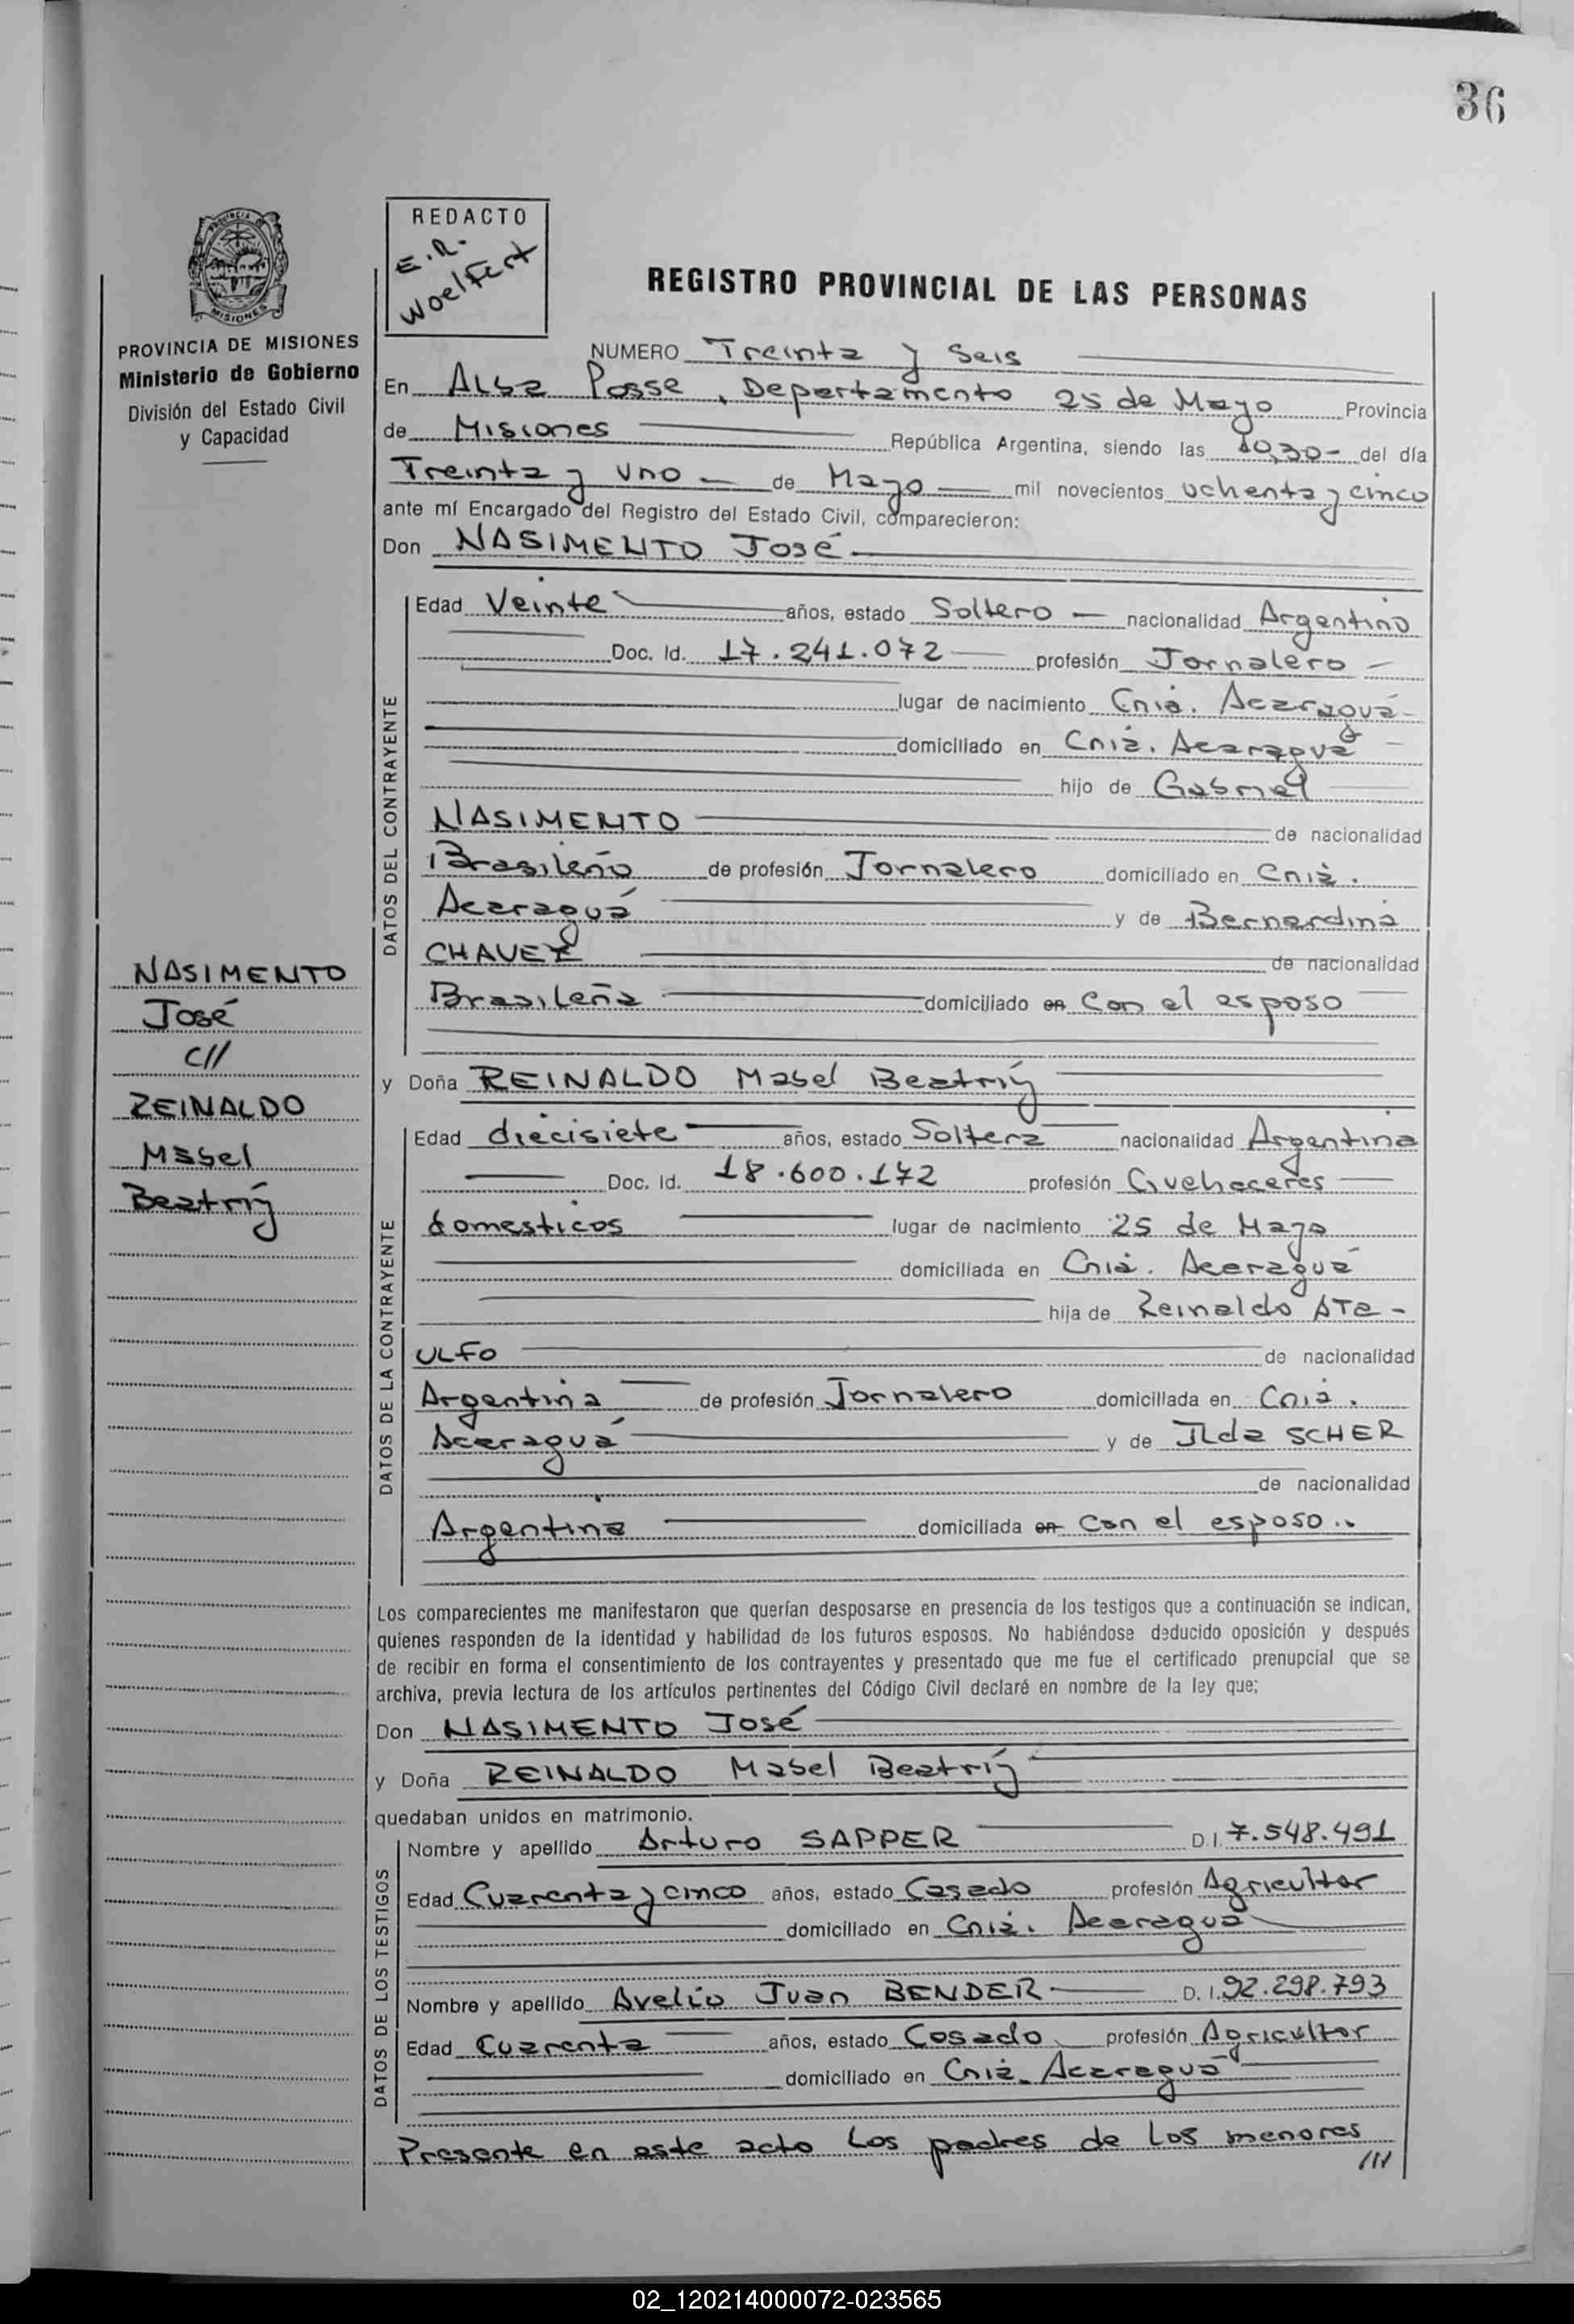 36
PROVINCIA DE MISIONES
MISIONES
PROVINCIA DE MISIONES
Ministerio de Gobierno
División del Estado Civil
y Capacidad
REDACTO
E.R.
Woelfert
REGISTRO PROVINCIAL DE LAS PERSONAS
NUMERO Treinta y Seis
En Alba Posse, Departamento 25 de Mayo Provincia
de Misiones República Argentina, siendo las 10,30- del día
Treinta y uno de Mayo mil novecientos ochenta y cinco
ante mí Encargado del Registro del Estado Civil, comparecieron:
Don NASIMENTO José
DATOS DEL CONTRAYENTE
Edad Veinte años, estado Soltero nacionalidad Argentino
Doc. Id. 17.241.072 profesión Jornalero
lugar de nacimiento Cnia. Acaraguá
domiciliado en Cnia. Acaraguá
hijo de Gabriel
NASIMENTO de nacionalidad
Brasileño de profesión Jornalero domiciliado en Cnia.
Acaraguá y de Bernardina
CHAVEZ de nacionalidad
Brasileña domiciliado en Con el esposo
NASIMENTO
José
C//
REINALDO
Mabel
Beatriz
y Doña REINALDO Mabel Beatriz
DATOS DE LA CONTRAYENTE
Edad diecisiete años, estado Soltera nacionalidad Argentina
Doc. Id. 18.600.172 profesión Quehaceres
domesticos lugar de nacimiento 25 de Mayo
domiciliada en Cnia. Acaraguá
hija de Reinaldo ATa-
ULFO de nacionalidad
Argentina de profesión Jornalero domiciliada en Cnia.
Acaraguá y de Ilda SCHER
de nacionalidad
Argentina domiciliada en Con el esposo..
Los comparecientes me manifestaron que querían desposarse en presencia de los testigos que a continuación se indican,
quienes responden de la identidad y habilidad de los futuros esposos. No habiéndose deducido oposición y después
de recibir en forma el consentimiento de los contrayentes y presentado que me fue el certificado prenupcial que se
archiva, previa lectura de los artículos pertinentes del Código Civil declaré en nombre de la ley que:
Don NASIMENTO José
y Doña REINALDO Mabel Beatriz
quedaban unidos en matrimonio.
DATOS DE LOS TESTIGOS
Nombre y apellido Arturo SAPPER D.I. 7.548.491
Edad Cuarenta y cinco años, estado Casado profesión Agricultor
domiciliado en Cnia. Acaraguá
Nombre y apellido Avelio Juan BENDER D.I. 92.298.793
Edad Cuarenta años, estado Casado profesión Agricultor
domiciliado en Cnia. Acaraguá
Presente en este acto los padres de los menores
///
02_120214000072-023565